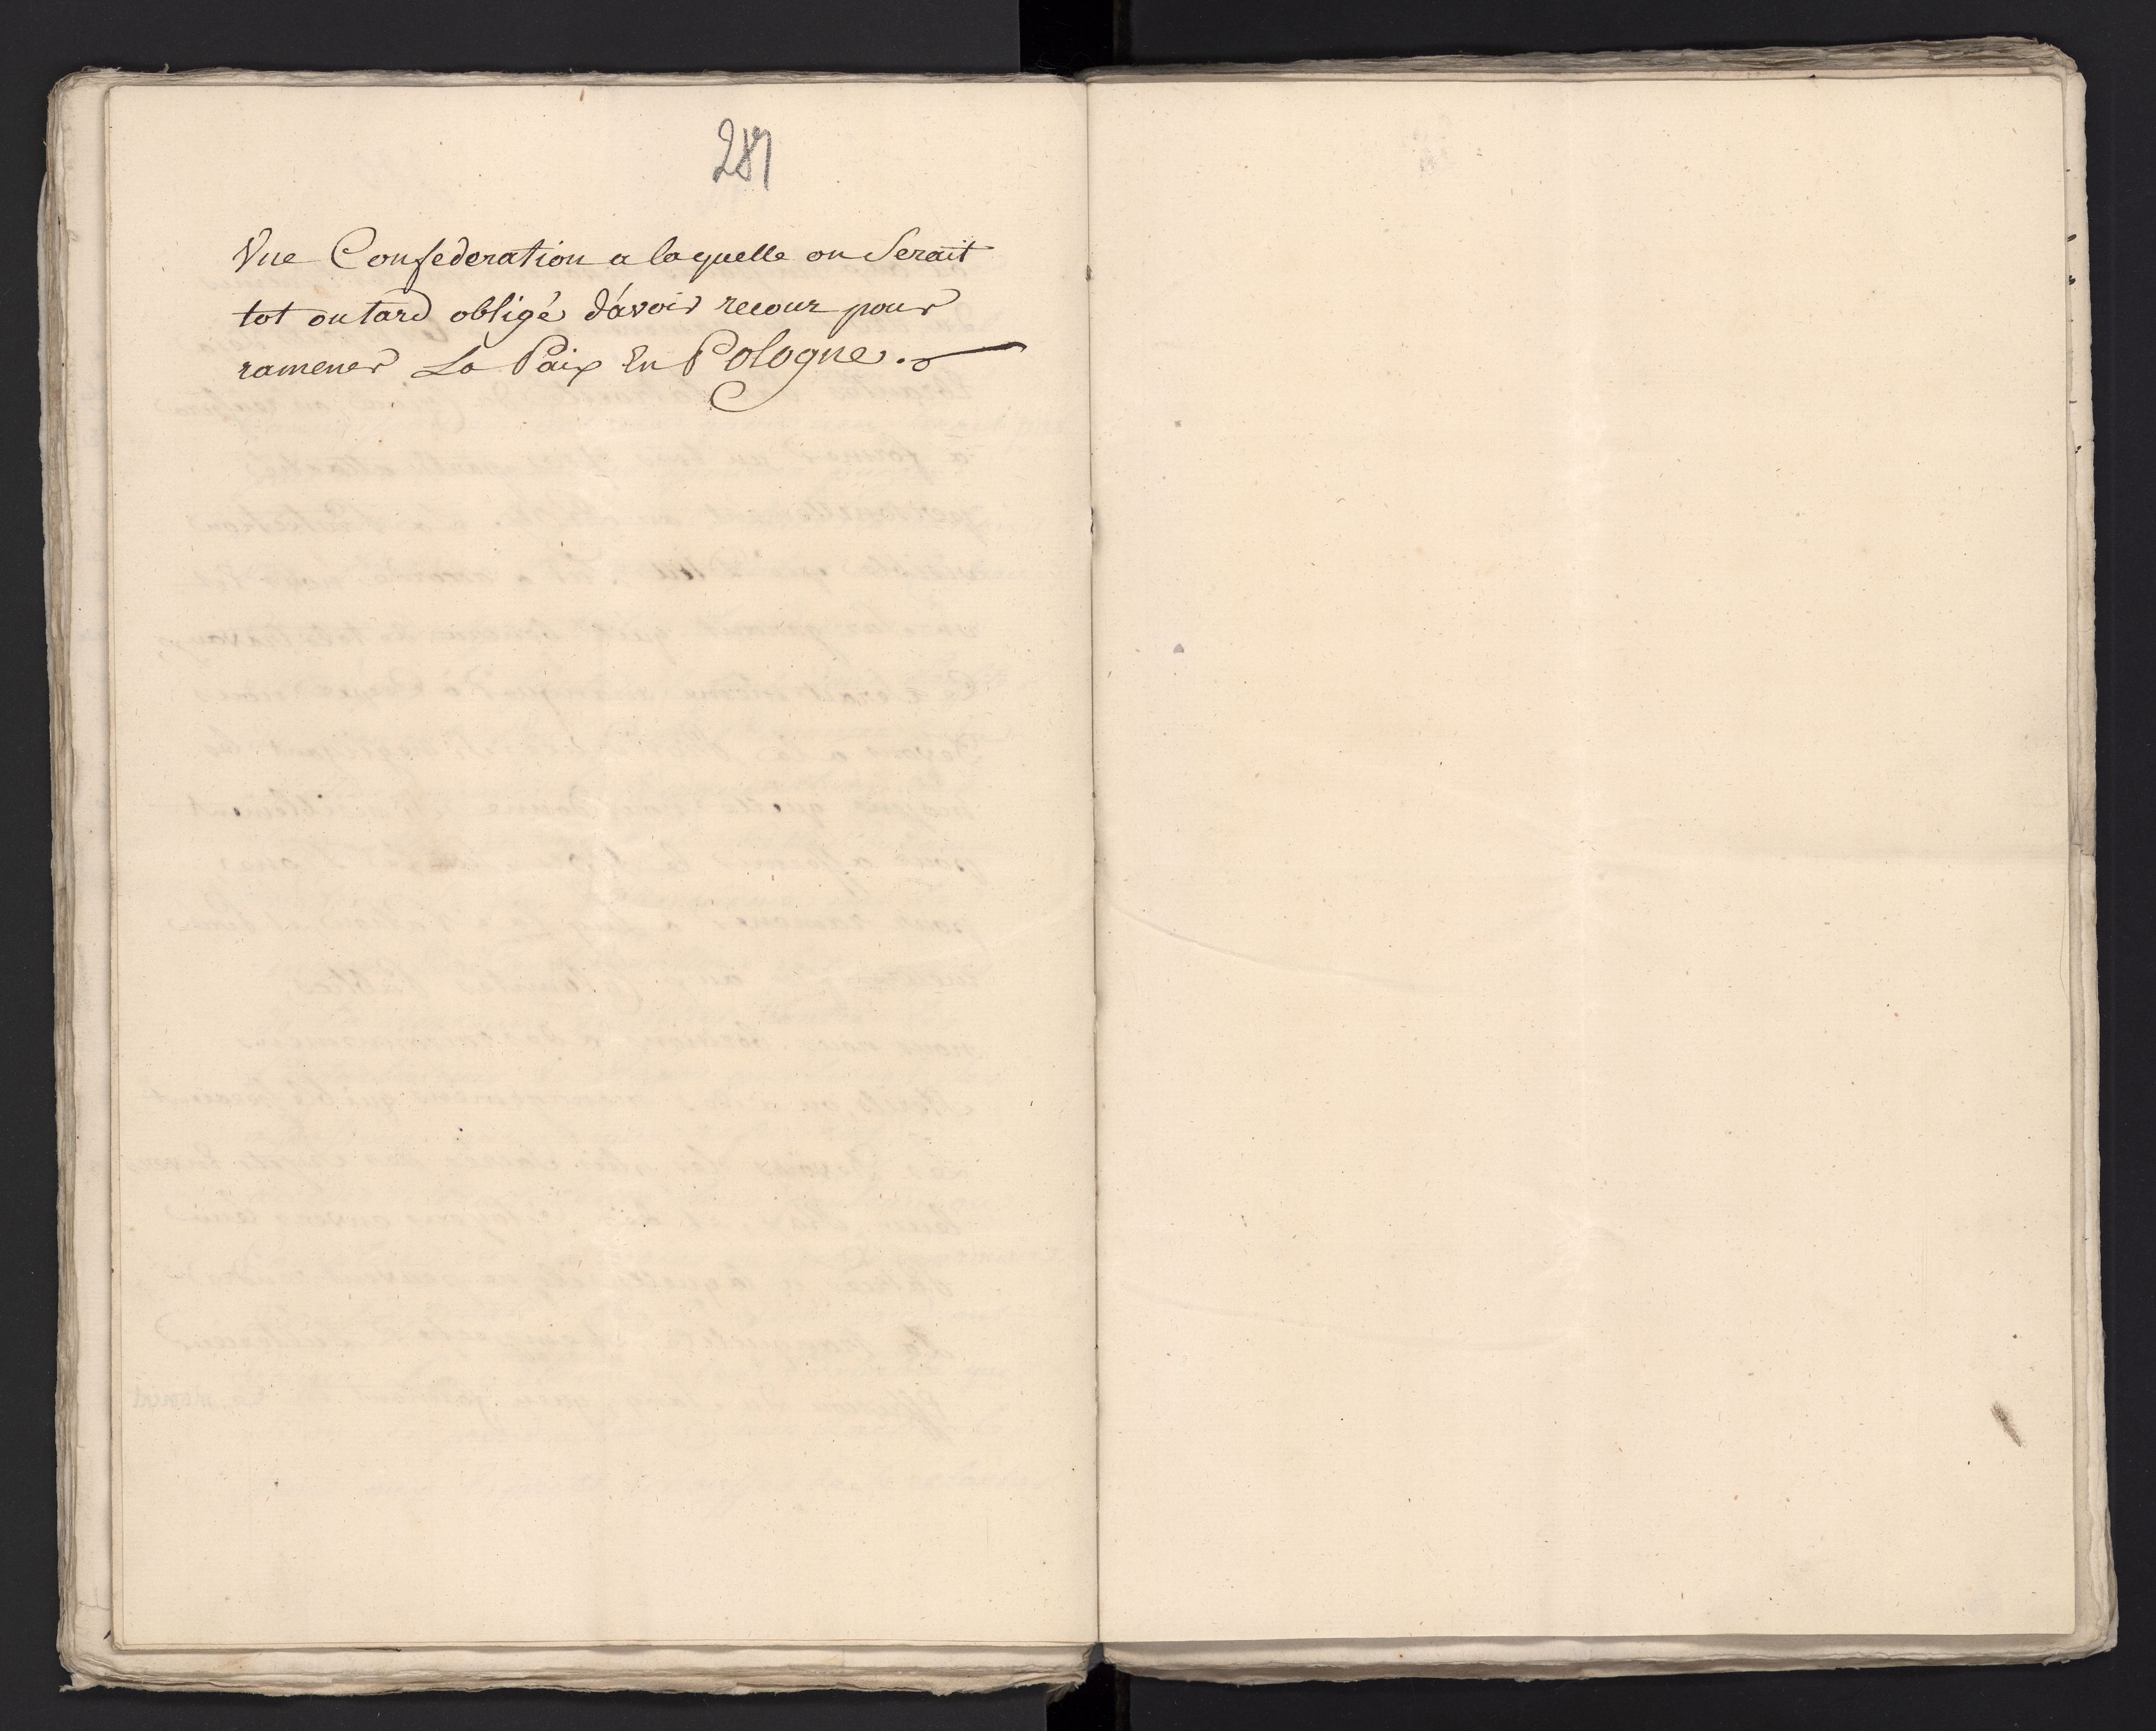 281
Vne Confederation a laquelle on Serait
tot ou tard obligé d'avoir recour pour
ramener La Paix En Pologne.